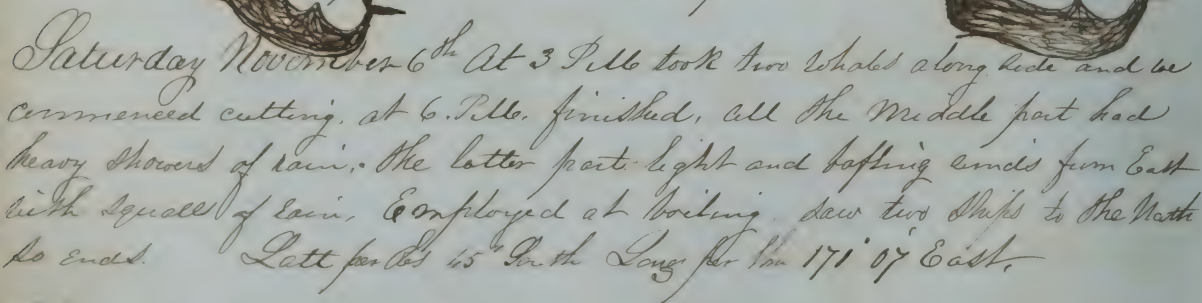 Saturday November 6th At 3 P.M. took two whales along side and we
commenced cutting. at 6. P.M. finished, all the middle part had
heavy showers of rain. the latter part light and baffling winds from East
with squalls of rain. Employed at boiling. saw two ships to the North
So ends. Latt per Obs 45 South Long per Chr 171° 07 East.